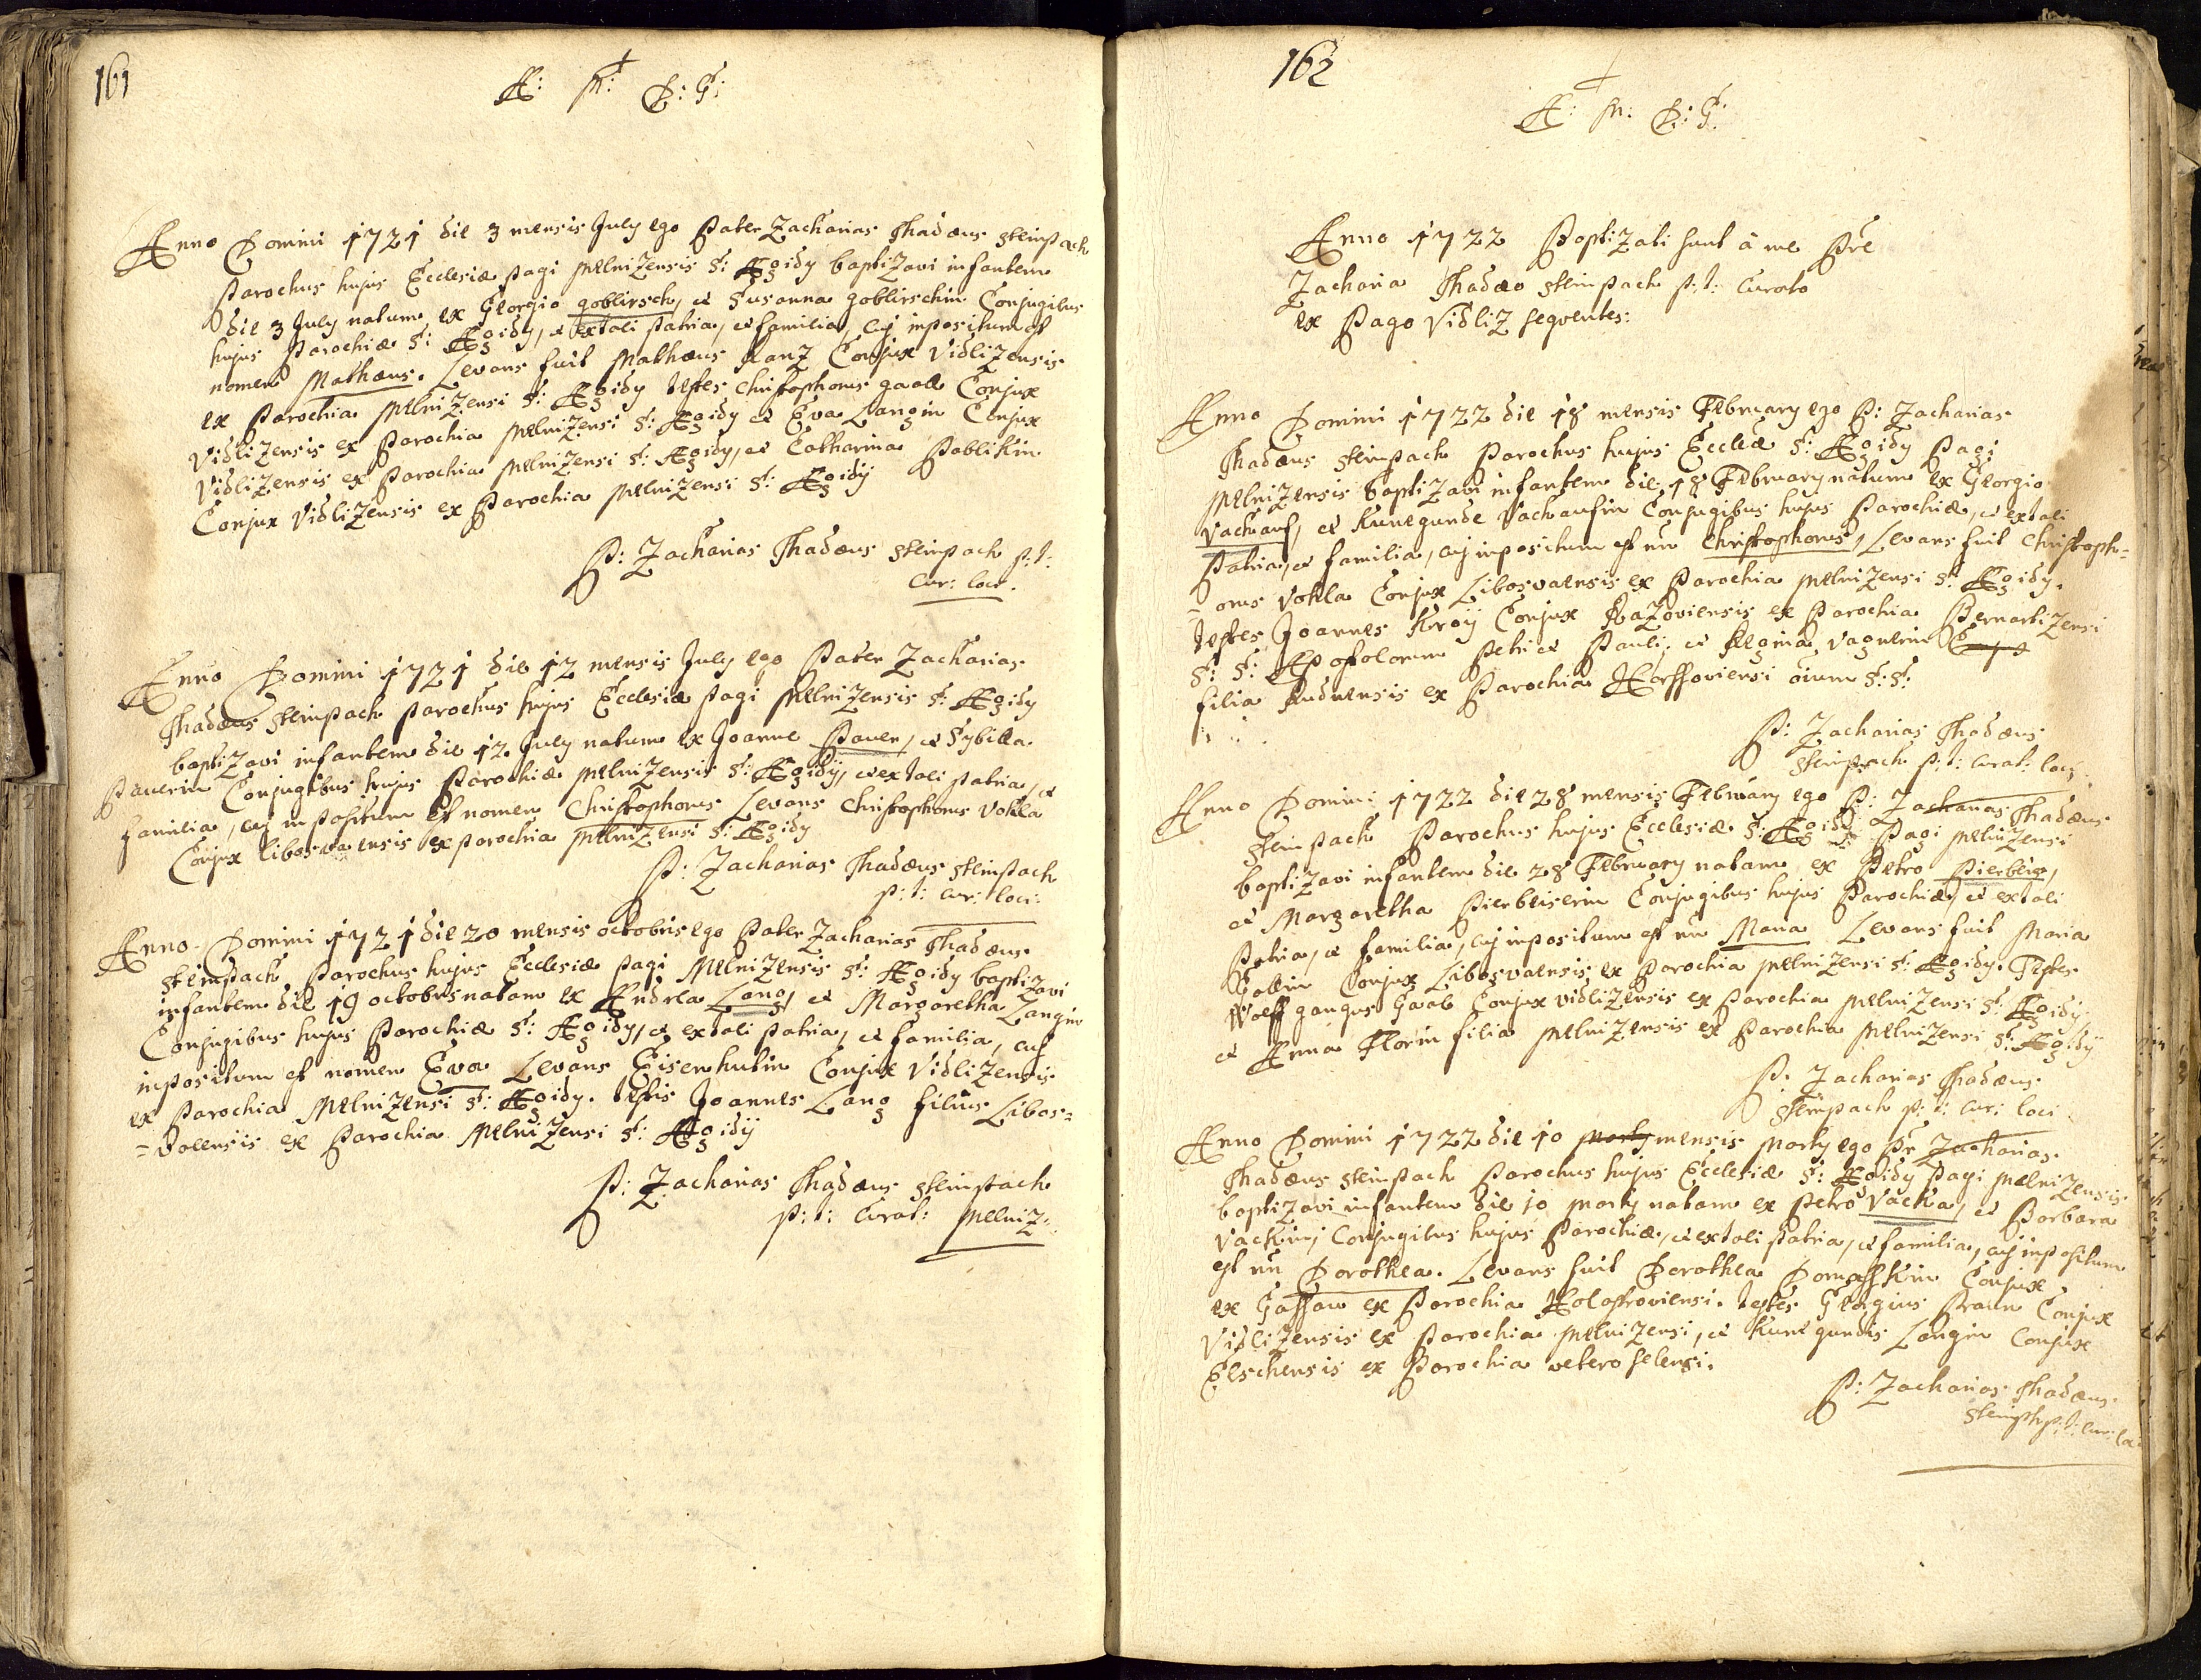 161
A: M: D: G:
Anno Domini 1721 die 3 mensis July ego Pater Zacharias Thadæus Steinpach
Parochus hujus Ecclesiæ pagi Melnizensis S: Ægidy baptizavi infantem
die 3 July natum ex Georgio goblirsch, et Susanna goblirschin Conjugibus
hujus Parochiæ S: Ægidy, et ex tali patria, et familia, cuj inpositum est
nomen Mathæus. Levans fuit Mathæus Ranz Conjux Vidlizensis
ex Parochia Melnizensi S: Ægidy testes Christophorus gaall Conjux
Vidlizensis ex Parochia Melnizensi S: Ægidy et Eva Langin Conjux
Vidlizensis ex Parochia Melnizensi S: Ægidy, et Catharina Pablikin
Conjux Vidlizensis ex Parochia Melnizensi S: Ægidÿ
P: Zacharias Thadæus Steinpach p: t:
Cur: loci.
Anno Domini 1721 die 12 mensis July ego Pater Zacharias
Thadæus Steinpach parochus hujus Ecclesiæ pagi Melnizensis S: Ægidy
baptizavi infantem die 12 July natum ex Joanne Pauer, et Sybilla
Pauerin Conjugibus hujus Parochiæ Melnizensis S: Ægidÿ, et ex tali patria, et
familia, cuj inpositum est nomen Christophorus Levans Christophorus Vokla
Conjux libosvaensis ex parochia Melnizensi S: Ægidy
P: Zacharias Thadæus Steinpach
p: t: cur: loci:
Anno Domini 1721 die 20 mensis octobris ego Pater Zacharias Thadæus
Steinpach Parochus hujus Ecclesiæ pagi Melnizensis S: Ægidy baptizavi
infantem die 19 octobris natam ex Andrea Lang, et Margaretha Langin
Conjugibus hujus Parochiæ S: Ægidy, et ex tali patria, et familia, cuj
inpositum est nomen Eva Levans Eisenhutin Conjux Vidlizensis
ex Parochia Melnizensi S: Ægidy. testis Joannes Lang filius Libos=
=vaensis ex Parochia Melnizensi S: Ægidÿ
P: Zacharias Thadæus Steinpach
p: t: Curat: Melniz:
162
A: M: D: G:
Anno 1722 Baptizati sunt â me Pre
Zacharia Thadæo Steinpach p: t: Curato
ex Pago Vidliz seqventes:
Anno Domini 1722 die 18 mensis February ego P: Zacharias
Thadæus Steinpach Parochus hujus Eccleæ S: Ægidy Pagi
Melnizensis baptizavi infantem die 18 February natum ex Georgio
Vachauf, et Kunegunde Vachaufin Conjugibus hujus Parochiæ, et ex tali
patria, et familia, cuj inpositum est nm Christophorus, Levans fuit Christoph=
=orus Vokla Conjux Libosvaensis ex Parochia Melnizensi S: Ægidy.
testes Joannes Kroÿ Conjux Razoviensis ex Parochia Bernartizensi
S: S: Apostolorum Petri et Pauli, et Regina Vagnerin
filia ex Parochia Hossoviensi oium S: S:
P: Zacharias Thadæus
Steinpach p: t: Curat: loci
Anno Domini 1722 die 28 mensis February ego P: Zacharias Thadæus
Steinpach Parochus hujus Ecclesiæ S: Ægidy Pagi Melnizensi
baptizavi infantem die 28 February natam ex Petro Pierbeis,
et Margaretha Pierbeiserin Conjugibus hujus Parochiæ, et ex tali
patria, et familia, cuj inpositum est nm Maria Levans fuit Maria
Gallin Conjux Libosvaensis ex Parochia Melnizensi S: Ægidy. Testes
Wolffgangus Gaal Conjux Vidlizensis ex Parochia Melnizensi S: Ægidÿ.
et Anna Florin filia Melnizensis ex Parochia Melnizensi S: Ægidÿ
P: Zacharias Thadæus
Steinpach p: t: Cur: loci
Anno Domini 1722 die 10 Marty mensis Marty ego Pr Zacharias
Thadæus Steinpach Parochus hujus Ecclesiæ S: Ægidy Pagi Melnizensis
baptizavi infantem die 10 Marty natam ex Petro Vacka, et Barbara
Vackinj Conjugibus hujus Parochiæ, et ex tali patria, et familia, cuj inpositum
est nm Dorothea. Levans fuit Dorothea Domaschkin Conjux
ex Gassau ex Parochia Holostroviensi. testes Georgius Praun Conjux
Vidlizensis ex Parochia Melnizensi, et Kunegundis Langin Conjux
Elschensis ex Parochia veteroselensi.
P: Zacharias Thadæus
Steinph p: t: cur: loci